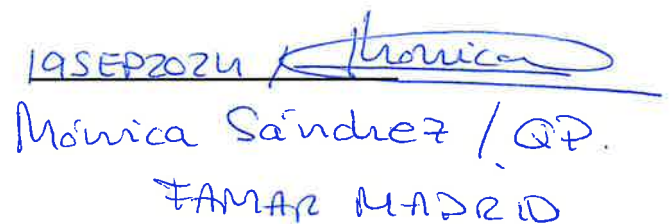 19SEP2024 / Mónica
Mónica Sánchez / QP.
FAMAR MADRID